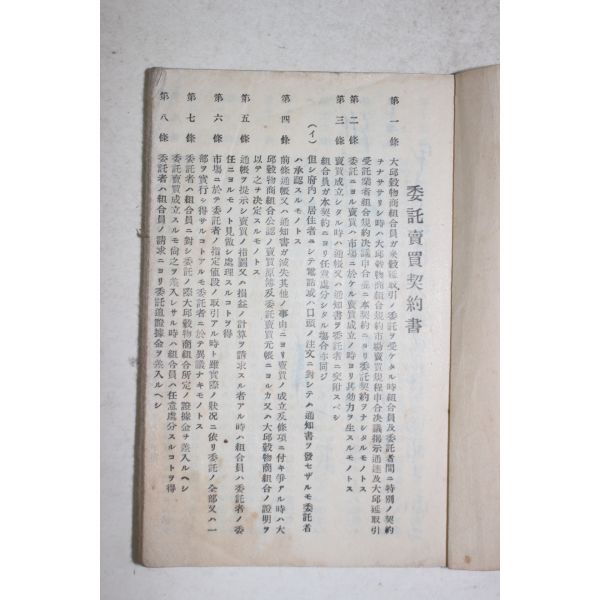 委託賣買契約書
第一條 大邱穀物商組合員ガ米穀延取引ノ委託ヲ受ケタル時組合員及委託者間ニ特別ノ契約
ヲナサザリシ時ハ大邱穀物商組合規約市場賣買規程申合決議揭示通達及大邱延取引
受託業者組合規約決議申合並ニ本契約ニヨリ委託契約ヲナシタルモノトス
第二條 委託ニヨル賣買ハ市場ニ於ケル賣買成立ノ時ヨリ其効力ヲ生スルモノトス
第三條 賣買成立シタル時ハ通帳又ハ通知書ヲ委託者ニ交附スベシ
組合員ガ本契約ニヨリ任意處分シタル塲合亦同ジ
(イ) 但シ府内ノ居住者ニシテ電話或ハ口頭ノ注文ニ對シテハ通知書ヲ發セザルモ委託者
ハ承認スルモノトス
第四條 前條通帳又ハ通知書ガ滅失其他ノ事由ニヨリ賣買ノ成立及條項ニ付キ爭アル時ハ大
邱穀物商組合公認ノ賣買原簿及委託賣買元帳ニヨルカ又ハ大邱穀物商組合ノ證明ヲ
以テ之ヲ決定スルモノトス
第五條 通帳ヲ提示シ賣買ノ指圖又ハ損益ノ計算ヲ請求スル者アル時ハ組合員ハ委託者ノ委
任ニヨルモノト見做シ處理スルコトヲ得
第六條 市塲ニ於テ委託者ノ指定値段ノ取引アル時ト雖實際ノ狀况ニ依リ委託ノ全部又ハ一
部ヲ實行シ得サルコトアルモ委託者ニ於テ異議ナキモノトス
第七條 委託者ハ組合員ニ對シ委託ノ際大邱穀物商組合所定ノ證據金ヲ差入ルヘシ
委託賣買成立スルモ尙之ヲ差入レサル時ハ組合員ハ任意處分スルコトヲ得
第八條 委託者ハ組合員ノ請求ニヨリ委託追證據金ヲ差入ルヘシ